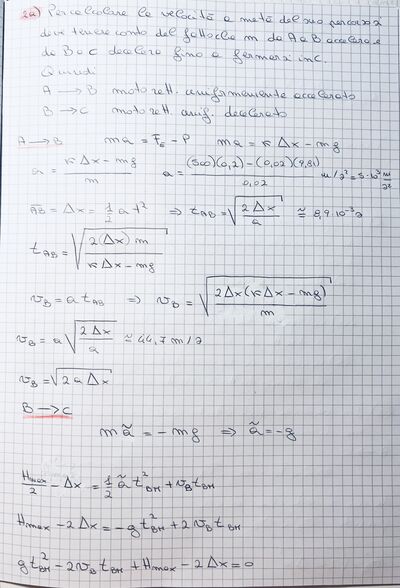 2a) Per calcolare la velocità a metà del suo percorso
deve tenere conto del fatto che m da A a B accelera e
da B a C decelera fino a fermarsi in C.
Quindi
A → B moto rett. uniformemente accelerato
B → C moto rett. unif. decelerato
A → B ma = Fe - P ma = κ Δx - mg
a = κ Δx - mg / m a = (500)(0,2) - (0,02)(9,81) / 0,02 m/s² ≃ 5·10³ m/s²
AB = Δx = 1/2 a t² ⇒ t_AB = √(2 Δx / a) ≅ 8,9·10⁻³ s
t_AB = √(2(Δx) m / κ Δx - mg)
v_B = a t_AB ⇒ v_B = √(2 Δx (κ Δx - mg) / m)
v_B = a √(2 Δx / a) ≅ 44,7 m/s
v_B = √(2 a Δx)
B → C
m ã = - mg ⇒ ã = -g
Hmax/2 - Δx = 1/2 ã t²_BM + v_B t_BM
Hmax - 2Δx = -g t²_BM + 2 v_B t_BM
g t²_BM - 2 v_B t_BM + Hmax - 2 Δx = 0